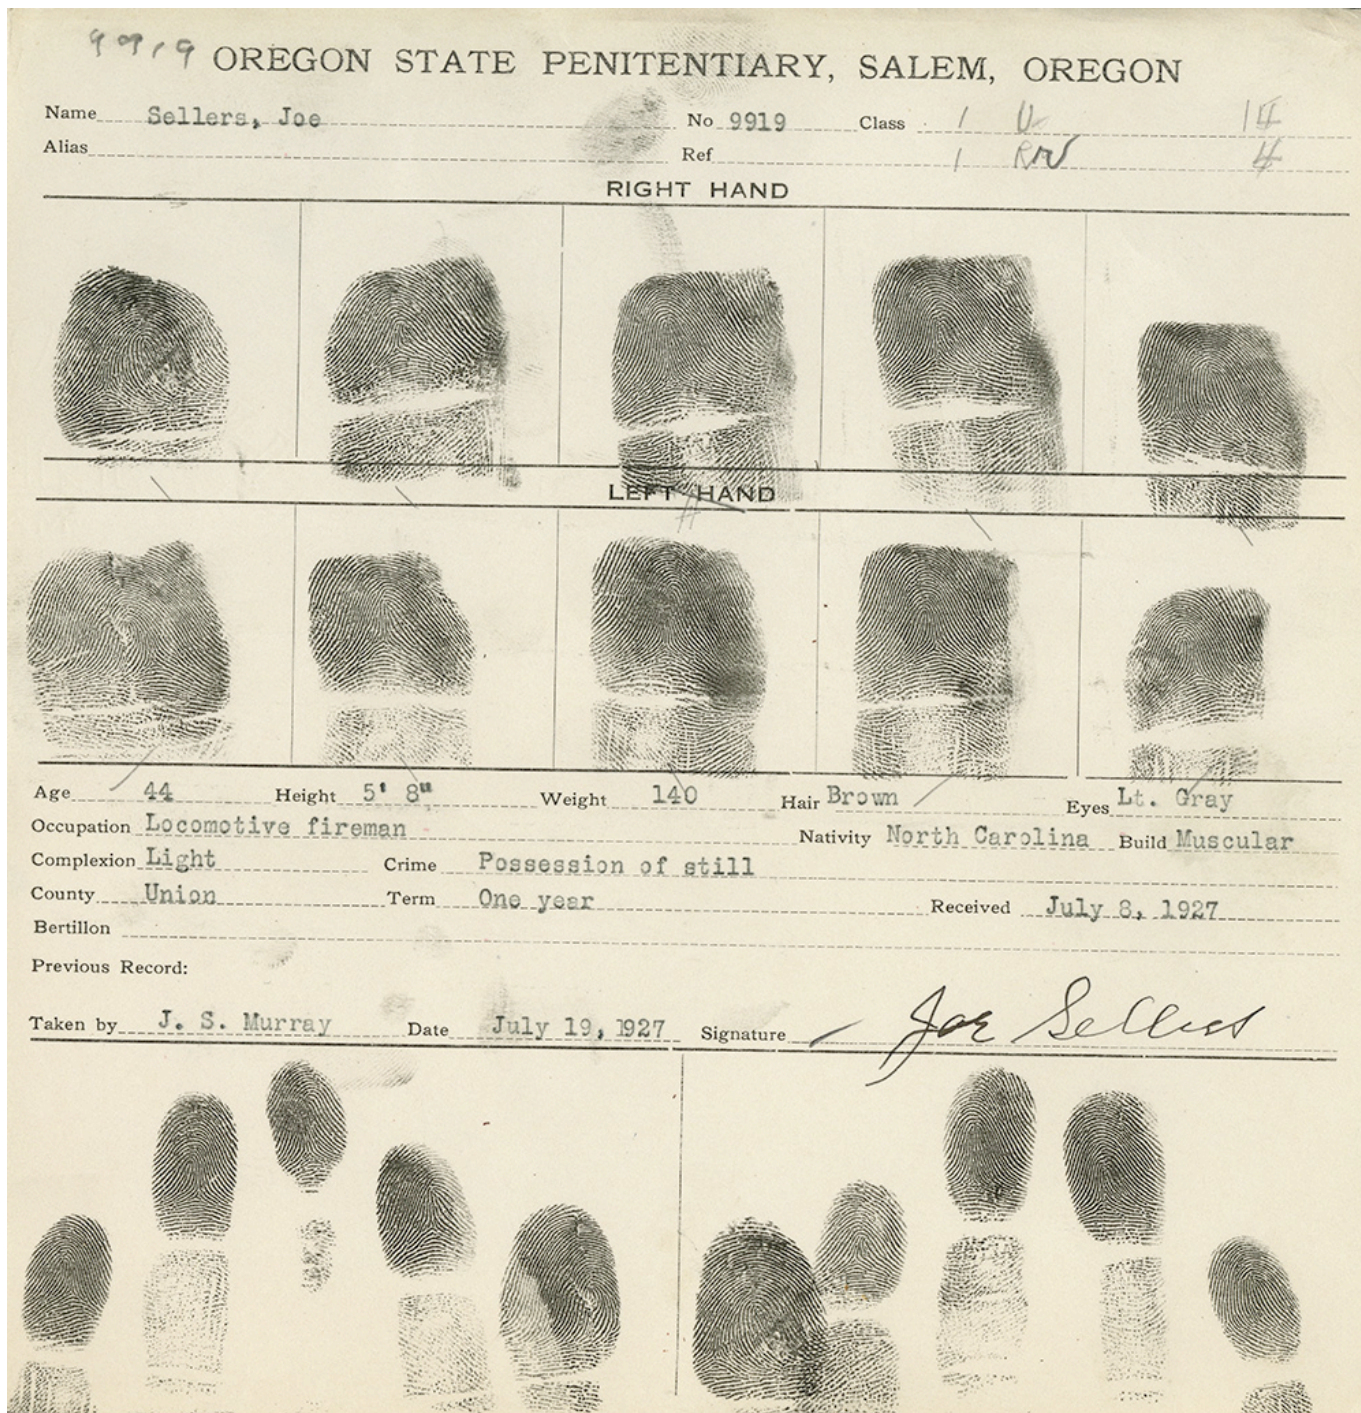 9919 OREGON STATE PENITENTIARY, SALEM, OREGON
Name Sellers, Joe No 9919 Class 1 U
Alias Ref 1
RIGHT HAND
LEFT HAND
Age 44 Height 5' 8" Weight 140 Hair Brown Eyes Lt. Gray
Occupation Locomotive fireman Nativity North Carolina Build Muscular
Complexion Light Crime Possession of still
County Union Term One year Received July 8, 1927
Bertillon
Previous Record:
Taken by J. S. Murray Date July 19, 1927 Signature Joe Sellers